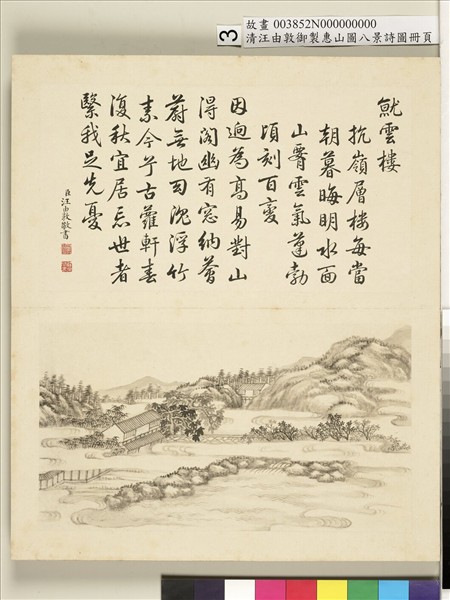 故畫 003852N000000000
清汪由敦御製惠山園八景詩圖冊頁
3
就雲樓
抗嶺層樓每當
朝暮晦明水面
山腰雲氣蓬勃
頃刻百變
因迥為高易對山
得閣幽有窓納薈
蔚無地可沉浮竹
素今兮古蘿軒春
復秋宜居忘世者
繄我正先憂
臣汪由敦敬書